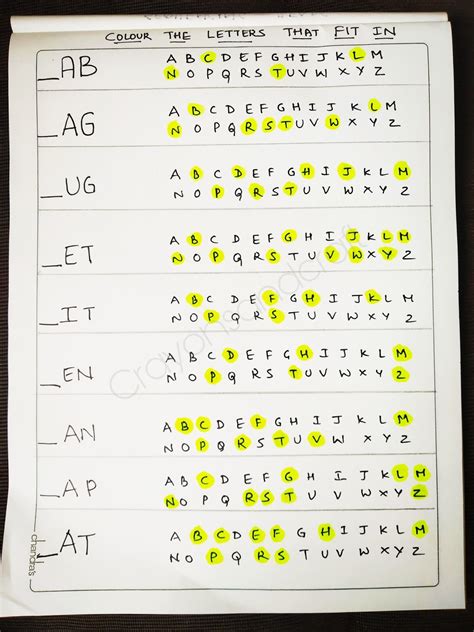 COLOUR THE LETTERS THAT FIT IN
_AB
A B C D E F G H I J K L M
N O P Q R S T U V W X Y Z
_AG
A B C D E F G H I J K L M
N O P Q R S T U V W X Y Z
_UG
A B C D E F G H I J K L M
N O P Q R S T U V W X Y Z
_ET
A B C D E F G H I J K L M
N O P Q R S T U V W X Y Z
_IT
A B C D E F G H I J K L M
N O P Q R S T U V W X Y Z
_EN
A B C D E F G H I J K L M
N O P Q R S T U V W X Y Z
_AN
A B C D E F G H I J K L M
N O P Q R S T U V W X Y Z
_AP
A B C D E F G H I J K L M
N O P Q R S T U V W X Y Z
_AT
A B C D E F G H I J K L M
N O P Q R S T U V W X Y Z
crayonsandcraft